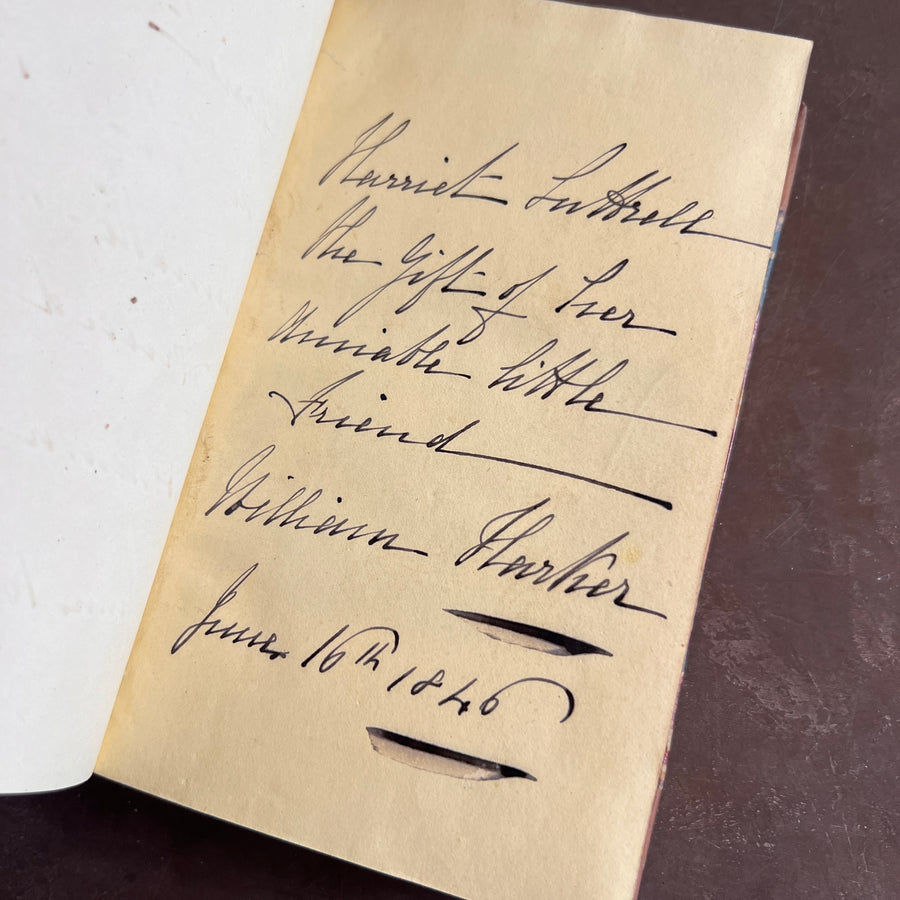 Harriet Luttrell
the Gift of her
Amiable little
Friend
William Harker
June 16th 1846